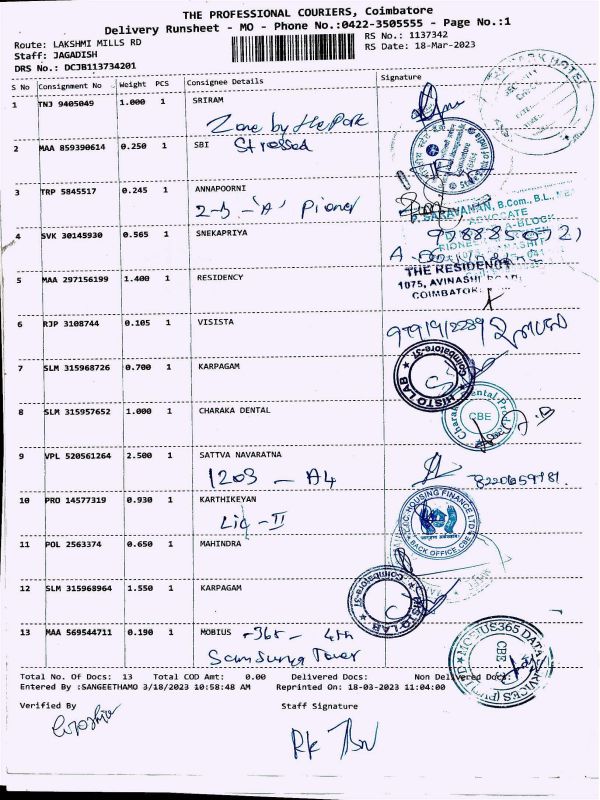 THE PROFESSIONAL COURIERS, Coimbatore
Delivery Runsheet - MO - Phone No.:0422-3505555 - Page No.:1
Route: LAKSHMI MILLS RD
RS No.: 1137342
Staff: JAGADISH
RS Date: 18-Mar-2023
DRS No.: DCJB113734201
S No Consignment No Weight PCS Consignee Details Signature
1 TNJ 9405049 1.000 1 SRIRAM
Zone by the Park
2 MAA 859390614 0.250 1 SBI
Stressed
3 TRP 5845517 0.245 1 ANNAPOORNI
2-D - 'A' Pioner
SARAVANAN, B.Com., B.L.,
ADVOCATE
4 SVK 30145930 0.565 1 SNEKAPRIYA
5 MAA 297156199 1.400 1 RESIDENCY
THE RESIDENCY
1075, AVINASHI
COIMBATOR
6 RJP 3108744 0.105 1 VISISTA
7 SLM 315968726 0.700 1 KARPAGAM
HISTO LAB Coimbatore-37
8 SLM 315957652 1.000 1 CHARAKA DENTAL
CBE
9 VPL 520561264 2.500 1 SATTVA NAVARATNA
1203 - A4
8220659181
10 PRO 14577319 0.930 1 KARTHIKEYAN
Lic - II
HOUSING FINANCE LTD
BACK OFFICE, CBE
11 POL 2563374 0.650 1 MAHINDRA
12 SLM 315968964 1.550 1 KARPAGAM
HISTO LAB Coimbatore-37
13 MAA 569544711 0.190 1 MOBIUS - 365 - 4th
Samsung Tower
MOBIUS365 DATA SERVICES (P) LTD
CBE - 37
Total No. Of Docs: 13 Total COD Amt: 0.00 Delivered Docs: Non Delivered Docs:
Entered By :SANGEETHAMO 3/18/2023 10:58:48 AM Reprinted On: 18-03-2023 11:04:00
Verified By Staff Signature